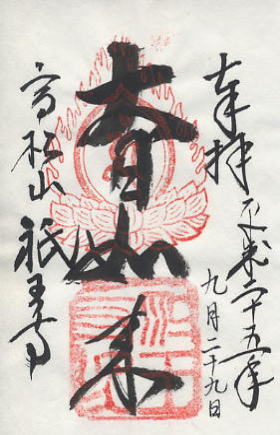 奉拝 平成二十五年
九月二十九日
大日如来
高松山 祇王寺